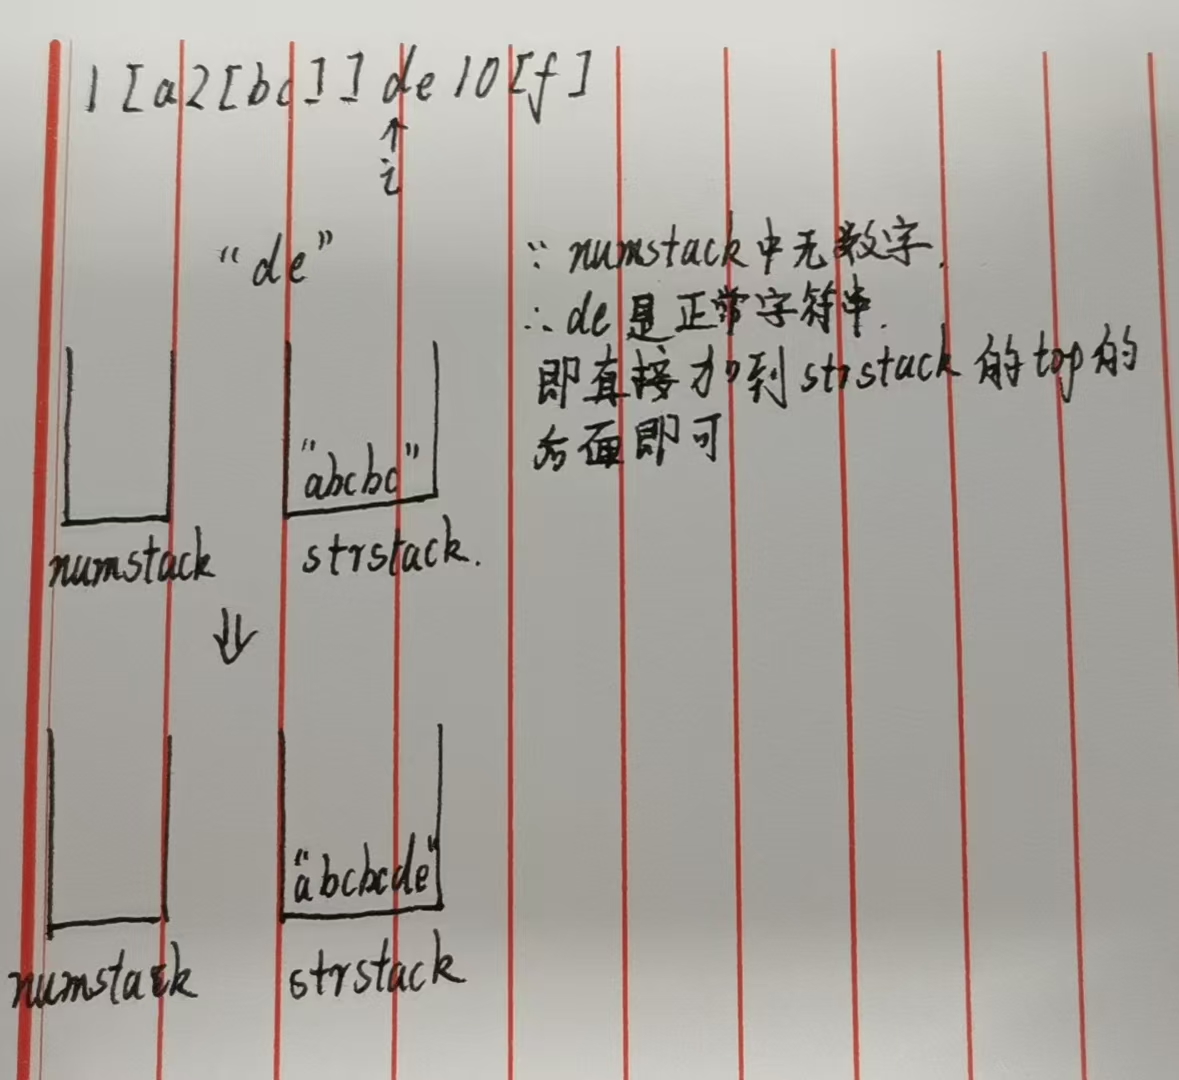 1[a2[bc]]de10[f]
↑
i
“de”
∵ numstack中无数字.
∴ de是正常字符串.
即直接加到strstack的top的
后面即可
“abcbc”
numstack
strstack.
⇓
“abcbcde”
numstack
strstack